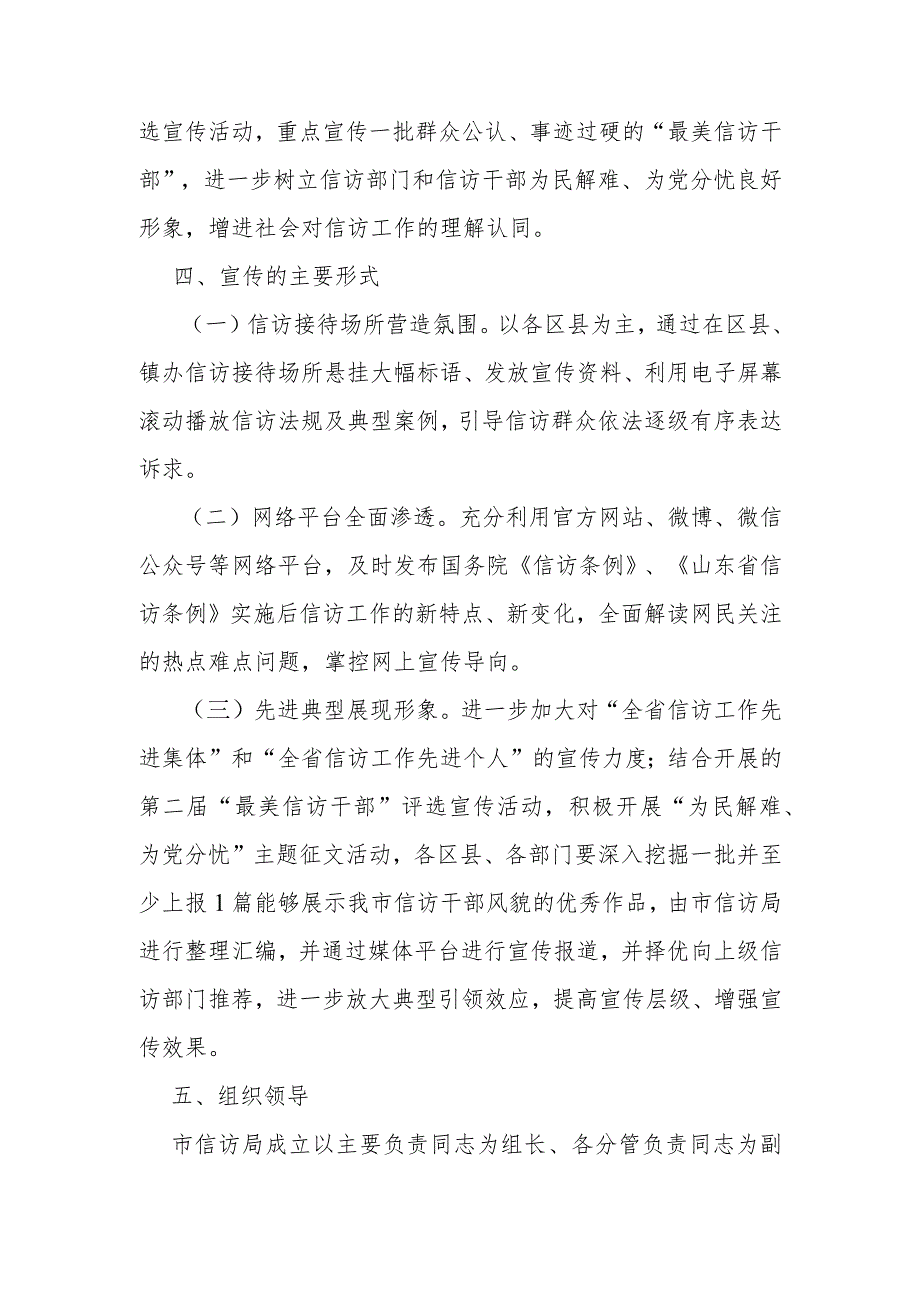 选宣传活动，重点宣传一批群众公认、事迹过硬的“最美信访干
部”，进一步树立信访部门和信访干部为民解难、为党分忧良好
形象，增进社会对信访工作的理解认同。
四、宣传的主要形式
（一）信访接待场所营造氛围。以各区县为主，通过在区县、
镇办信访接待场所悬挂大幅标语、发放宣传资料、利用电子屏幕
滚动播放信访法规及典型案例，引导信访群众依法逐级有序表达
诉求。
（二）网络平台全面渗透。充分利用官方网站、微博、微信
公众号等网络平台，及时发布国务院《信访条例》、《山东省信
访条例》实施后信访工作的新特点、新变化，全面解读网民关注
的热点难点问题，掌控网上宣传导向。
（三）先进典型展现形象。进一步加大对“全省信访工作先
进集体”和“全省信访工作先进个人”的宣传力度；结合开展的
第二届“最美信访干部”评选宣传活动，积极开展“为民解难、
为党分忧”主题征文活动，各区县、各部门要深入挖掘一批并至
少上报1篇能够展示我市信访干部风貌的优秀作品，由市信访局
进行整理汇编，并通过媒体平台进行宣传报道，并择优向上级信
访部门推荐，进一步放大典型引领效应，提高宣传层级、增强宣
传效果。
五、组织领导
市信访局成立以主要负责同志为组长、各分管负责同志为副